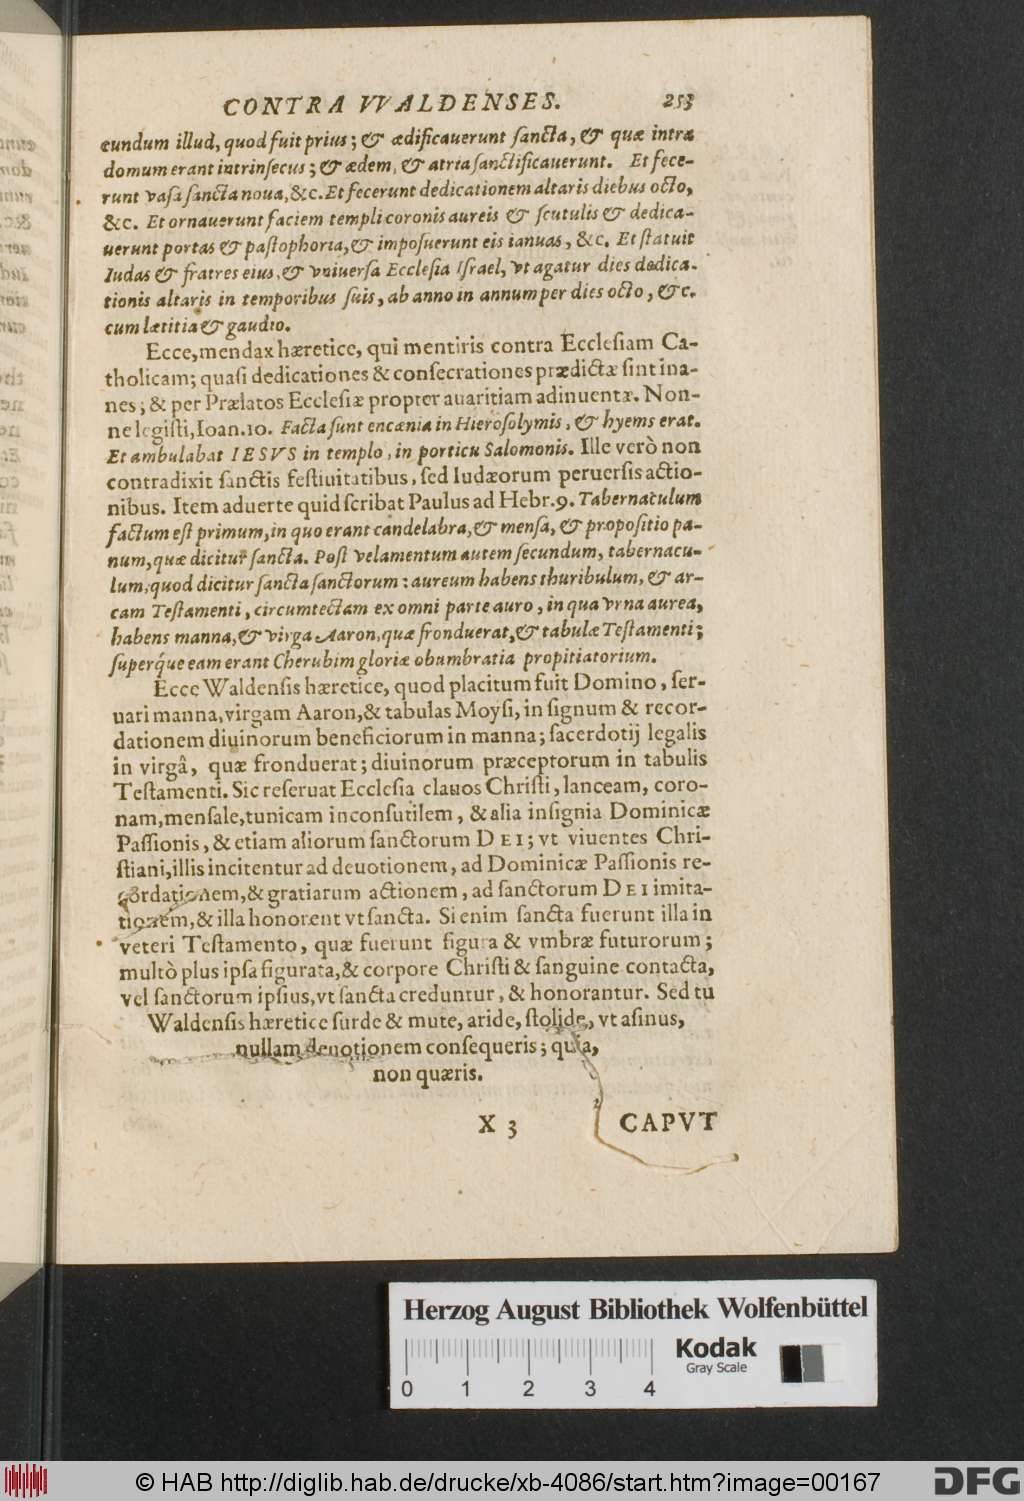 CONTRA VVALDENSES. 253
cundum illud, quod fuit prius; & ædificauerunt ſancta, & quæ intra
domum erant intrinſecus; & ædem, & atria ſanctificauerunt. Et fece-
runt vaſa ſancta noua, &c. Et fecerunt dedicationem altaris diebus octo,
&c. Et ornauerunt faciem templi coronis aureis & ſcutulis & dedica-
uerunt portas & paſtophoria, & impoſuerunt eis ianuas, &c. Et ſtatuit
Iudas & fratres eius, & vniuerſa Eccleſia Iſrael, vt agatur dies dedica-
tionis altaris in temporibus ſuis, ab anno in annum per dies octo, &c.
cum lætitia & gaudio.
Ecce, mendax hæretice, qui mentiris contra Eccleſiam Ca-
tholicam; quaſi dedicationes & conſecrationes prædictæ ſint ina-
nes; & per Prælatos Eccleſiæ propter auaritiam adinuentæ. Non-
ne legiſti, Ioan. 10. Facta ſunt encænia in Hieroſolymis, & hyems erat.
Et ambulabat IESVS in templo, in porticu Salomonis. Ille verò non
contradixit ſanctis feſtiuitatibus, ſed Iudæorum peruerſis actio-
nibus. Item aduerte quid ſcribat Paulus ad Hebr. 9. Tabernaculum
factum eſt primum, in quo erant candelabra, & menſa, & propoſitio pa-
num, quæ dicitur ſancta. Poſt velamentum autem ſecundum, tabernacu-
lum, quod dicitur ſancta ſanctorum: aureum habens thuribulum, & ar-
cam Teſtamenti, circumtectam ex omni parte auro, in qua vrna aurea,
habens manna, & virga Aaron, quæ fronduerat, & tabulæ Teſtamenti;
ſuperq́ue eam erant Cherubim gloriæ obumbratia propitiatorium.
Ecce Waldenſis hæretice, quod placitum fuit Domino, ſer-
uari manna, virgam Aaron, & tabulas Moyſi, in ſignum & recor-
dationem diuinorum beneficiorum in manna; ſacerdotij legalis
in virgâ, quæ fronduerat; diuinorum præceptorum in tabulis
Teſtamenti. Sic reſeruat Eccleſia clauos Chriſti, lanceam, coro-
nam, menſale, tunicam inconſutilem, & alia inſignia Dominicæ
Paſſionis, & etiam aliorum ſanctorum DEI; vt viuentes Chri-
ſtiani, illis incitentur ad deuotionem, ad Dominicæ Paſſionis re-
cordationem, & gratiarum actionem, ad ſanctorum DEI imita-
tionem, & illa honorent vt ſancta. Si enim ſancta fuerunt illa in
veteri Teſtamento, quæ fuerunt figura & vmbræ futurorum;
multò plus ipſa figurata, & corpore Chriſti & ſanguine contacta,
vel ſanctorum ipſius, vt ſancta creduntur, & honorantur. Sed tu
Waldenſis hæretice ſurde & mute, aride, ſtolide, vt aſinus,
nullam deuotionem conſequeris; quia,
non quæris.
X 3 CAPVT
Herzog August Bibliothek Wolfenbüttel
Kodak
Gray Scale
0 1 2 3 4
© HAB http://diglib.hab.de/drucke/xb-4086/start.htm?image=00167
DFG